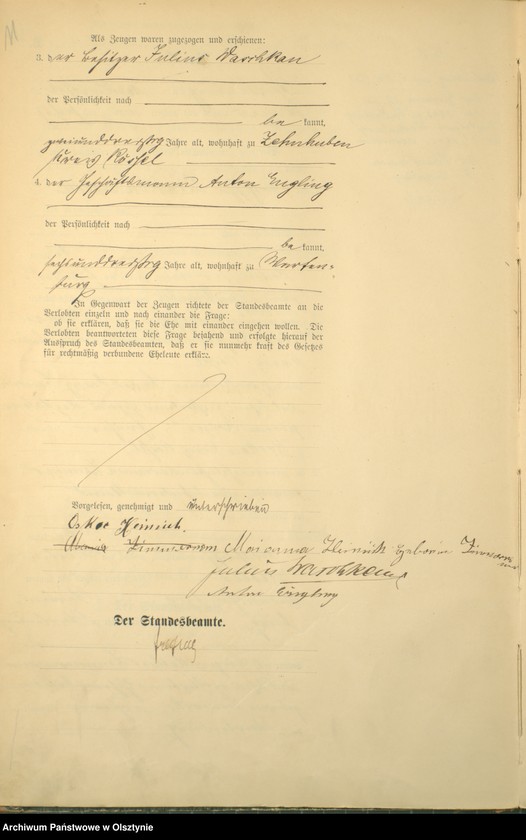 Als Zeugen waren zugezogen und erschienen:
3. der Besitzer Julius Waschkau
der Persönlichkeit nach
be kannt,
zweiunddreißig Jahre alt, wohnhaft zu Zehnhuben
Kreis Rössel
4. der Geschäftsmann Anton Engling
der Persönlichkeit nach
be kannt,
sechsunddreißig Jahre alt, wohnhaft zu Warten-
burg
In Gegenwart der Zeugen richtete der Standesbeamte an die
Verlobten einzeln und nach einander die Frage:
ob sie erklären, daß sie die Ehe mit einander eingehen wollen. Die
Verlobten beantworteten diese Frage bejahend und erfolgte hierauf der
Ausspruch des Standesbeamten, daß er sie nunmehr kraft des Gesetzes
für rechtmäßig verbundene Eheleute erkläre.
Vorgelesen, genehmigt und unterschrieben
Oskar Heinrich.
Marianna Heinrich geborene
Julius Waschkau
Anton Engling
Der Standesbeamte.
Archiwum Państwowe w Olsztynie